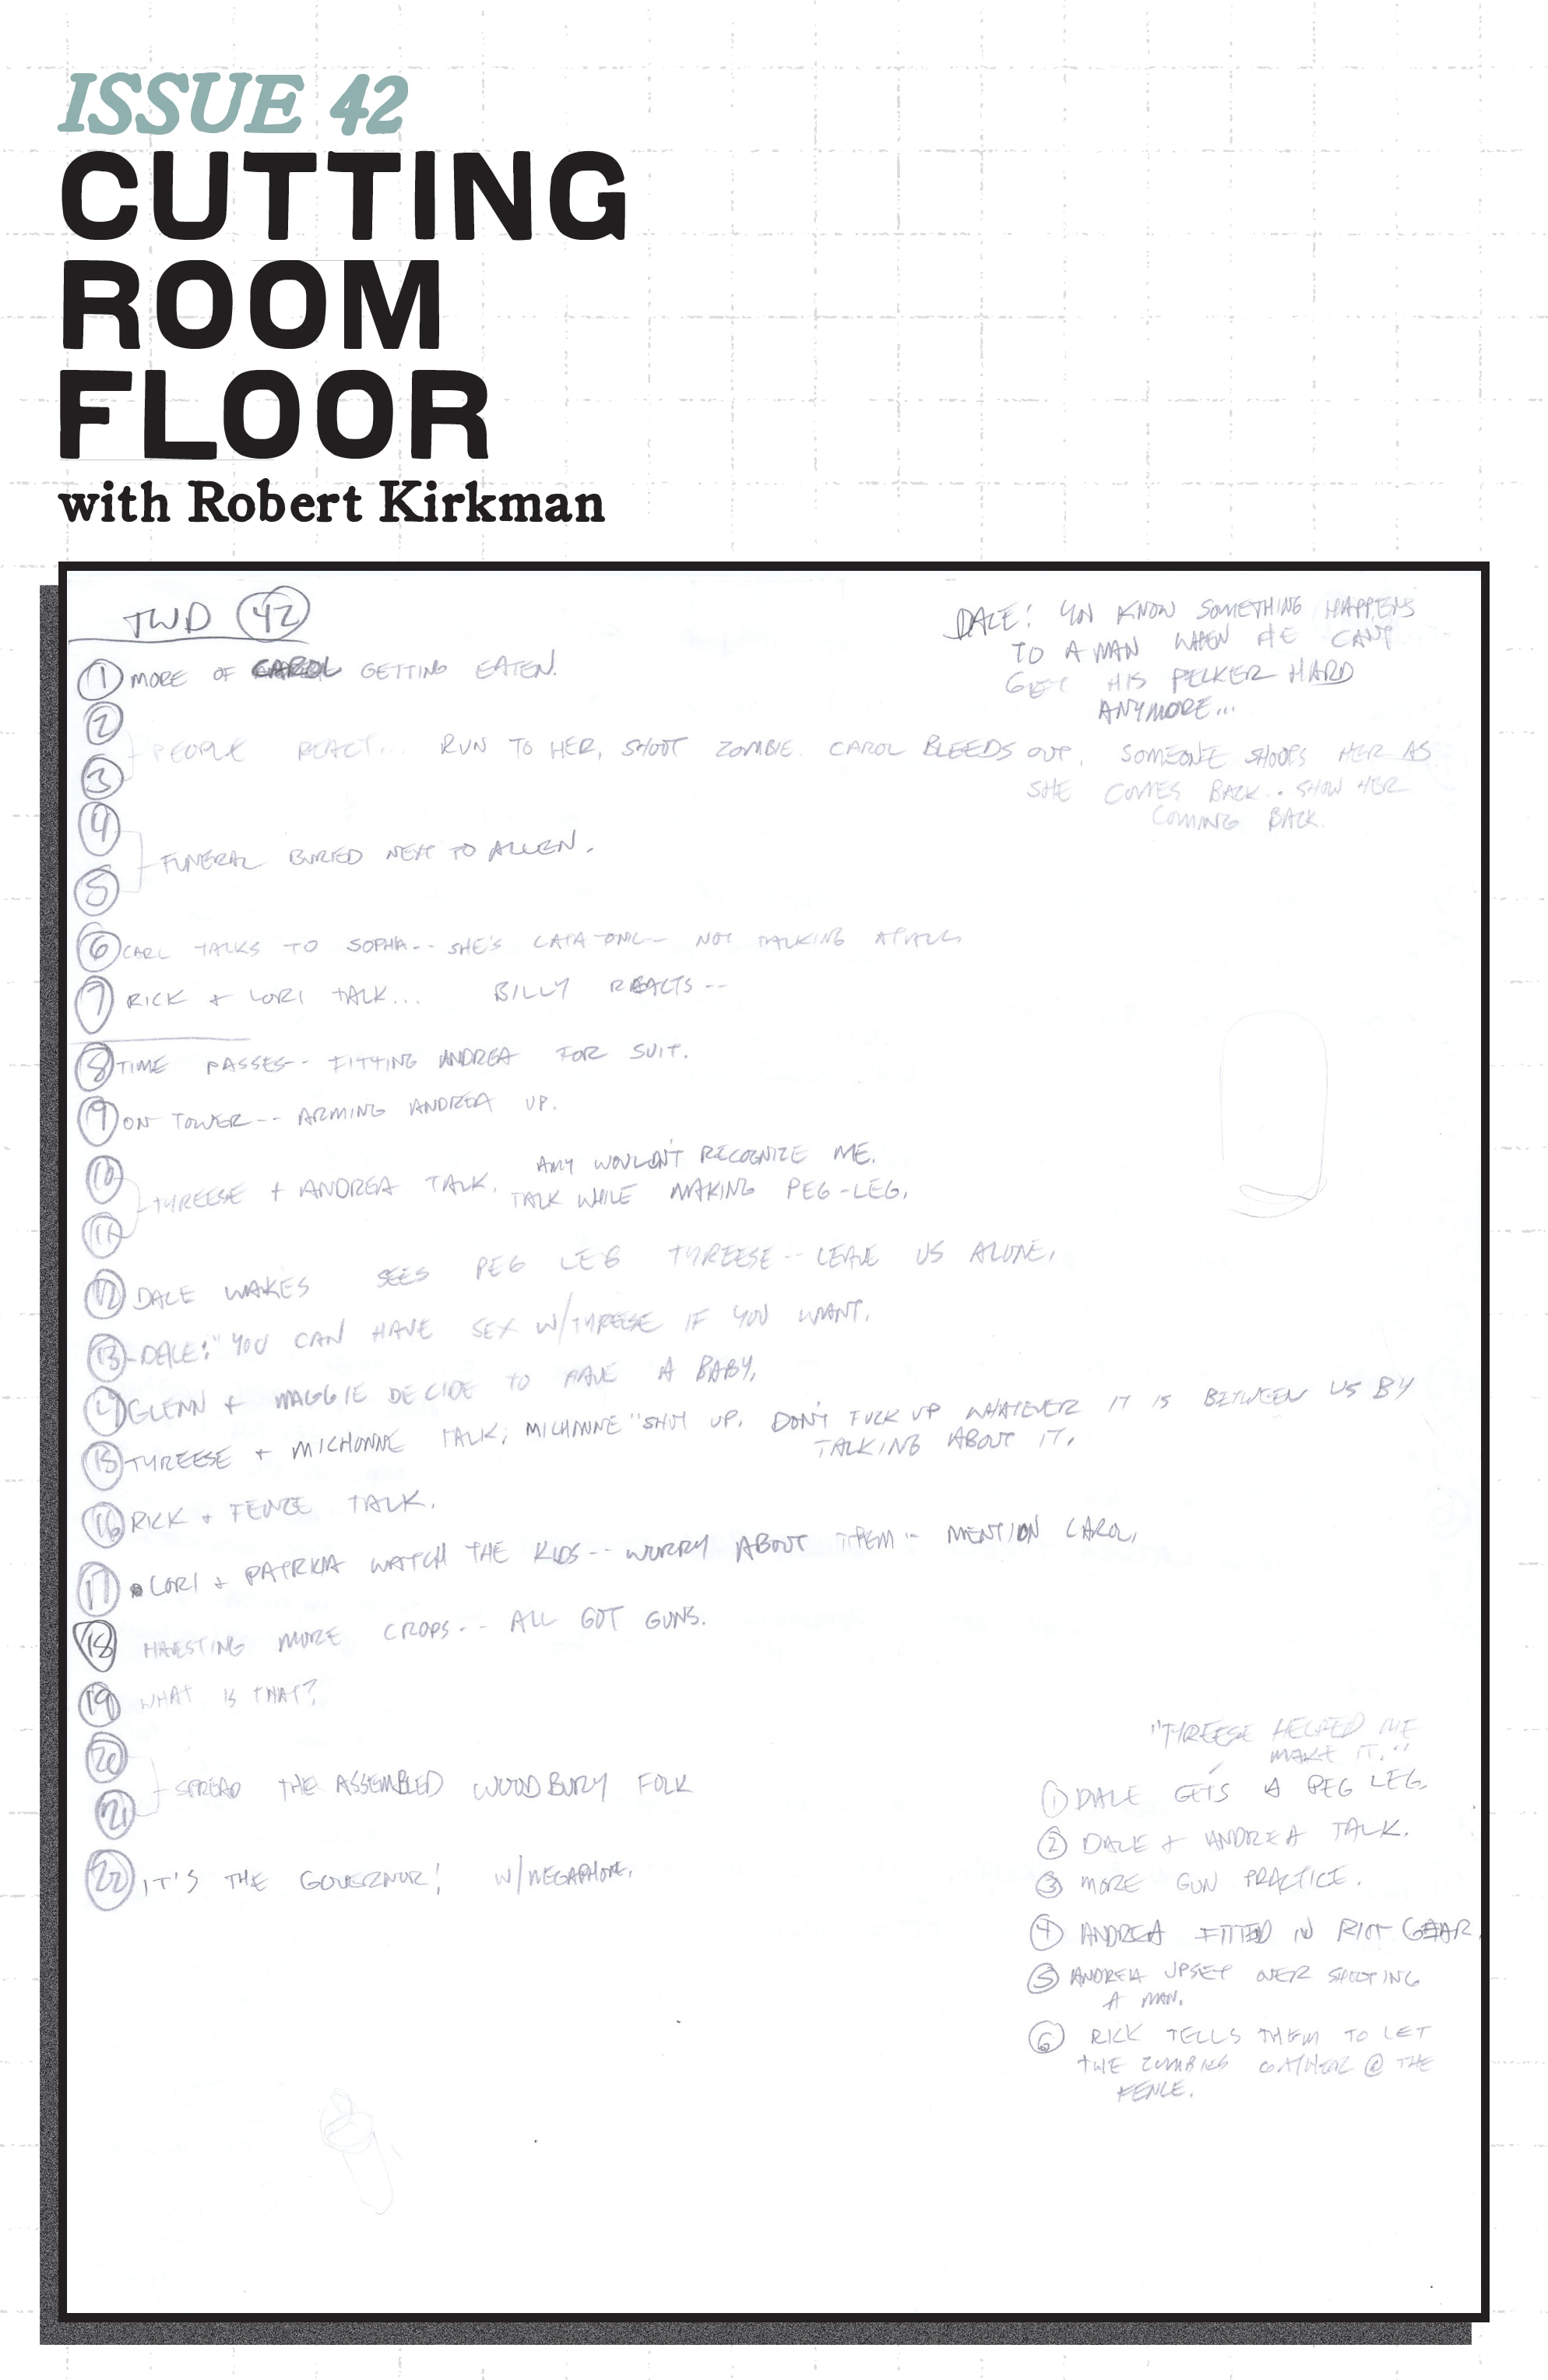 ISSUE 42
CUTTING
ROOM
FLOOR
with Robert Kirkman
TWD 42
DALE: YOU KNOW SOMETHING HAPPENS
TO A MAN WHEN HE CAN'T
GET HIS PECKER HARD
ANYMORE...
1 MORE OF CAROL GETTING EATEN.
2
3
PEOPLE REACT... RUN TO HER, SHOOT ZOMBIE. CAROL BLEEDS OUT. SOMEONE SHOOTS HER AS
SHE COMES BACK.. SHOW HER
COMING BACK.
4
5
FUNERAL BURIED NEXT TO ALLEN.
6 CARL TALKS TO SOPHIA-- SHE'S CATATONIC-- NOT TALKING AT ALL.
7 RICK + LORI TALK... BILLY REACTS--
8 TIME PASSES-- FITTING ANDREA FOR SUIT.
9 ON TOWER-- ARMING ANDREA UP.
10
11
TYREESE + ANDREA TALK. AMY WOULDN'T RECOGNIZE ME.
TALK WHILE MAKING PEG-LEG.
12 DALE WAKES SEES PEG LEG TYREESE-- LEAVE US ALONE.
13 -DALE: "YOU CAN HAVE SEX W/TYREESE IF YOU WANT.
14 GLENN + MAGGIE DECIDE TO HAVE A BABY.
15 TYREESE + MICHONNE TALK; MICHONNE "SHUT UP. DON'T FUCK UP WHATEVER IT IS BETWEEN US BY
TALKING ABOUT IT.
16 RICK + TALK.
17 LORI + PATRICIA WATCH THE KIDS-- WORRY ABOUT THEM-- MENTION CAROL.
18 HAVESTING MORE CROPS-- ALL GOT GUNS.
19 WHAT IS THAT?
20
21
SPREAD THE ASSEMBLED WOODBURY FOLK
22 IT'S THE GOVERNOR! W/MEGAPHONE.
"TYREESE HELPED ME
MAKE IT."
1 DALE GETS A PEG LEG.
2 DALE + ANDREA TALK.
3 MORE GUN PRACTICE.
4 ANDREA FITTED IN RIOT GEAR.
5 ANDREA UPSET OVER SHOOTING
A MAN.
6 RICK TELLS THEM TO LET
THE ZOMBIES GATHER @ THE
FENCE.